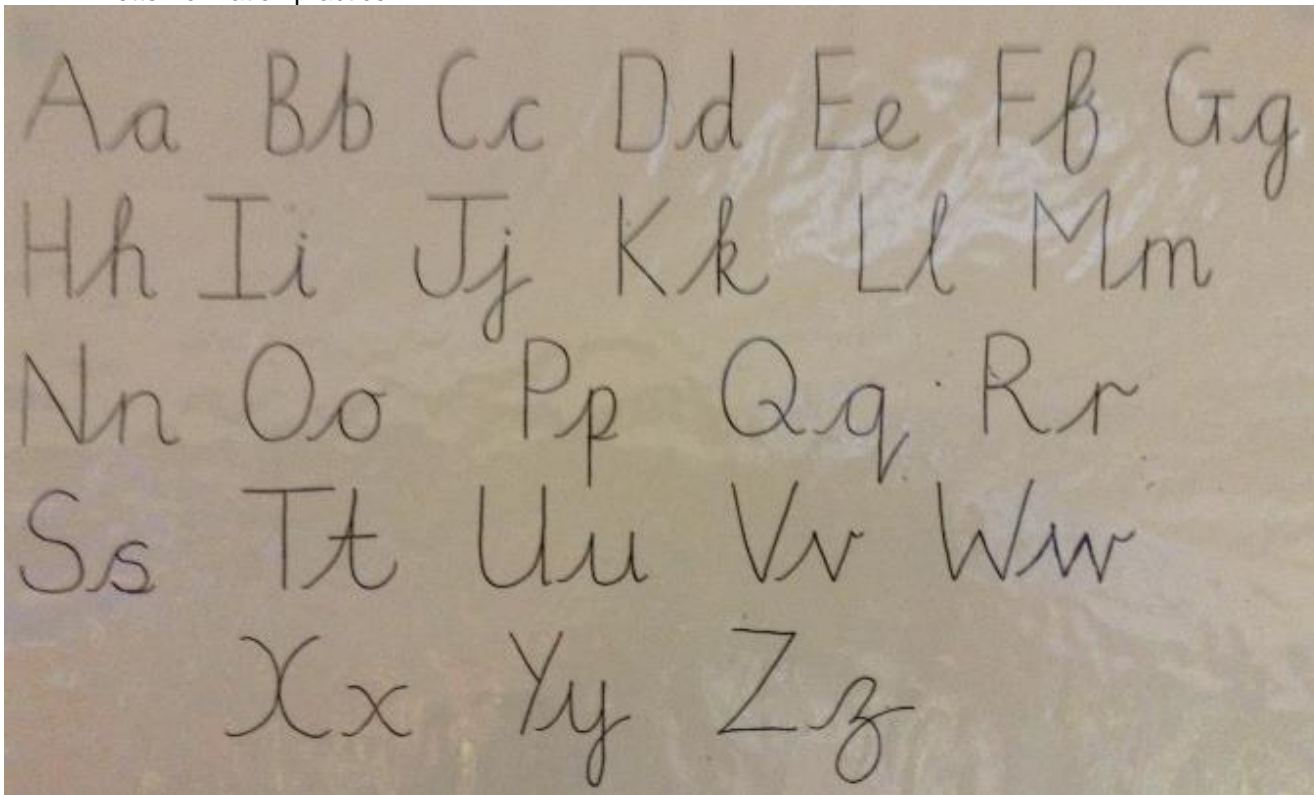 Aa Bb Cc Dd Ee Ff Gg
Hh Ii Jj Kk Ll Mm
Nn Oo Pp Qq Rr
Ss Tt Uu Vv Ww
Xx Yy Zz